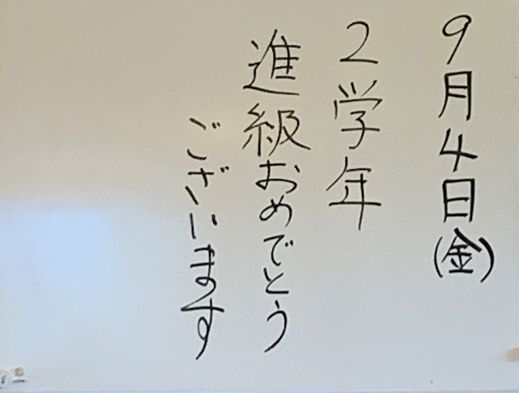 9月4日(金)
2学年
進級おめでとう
ございます